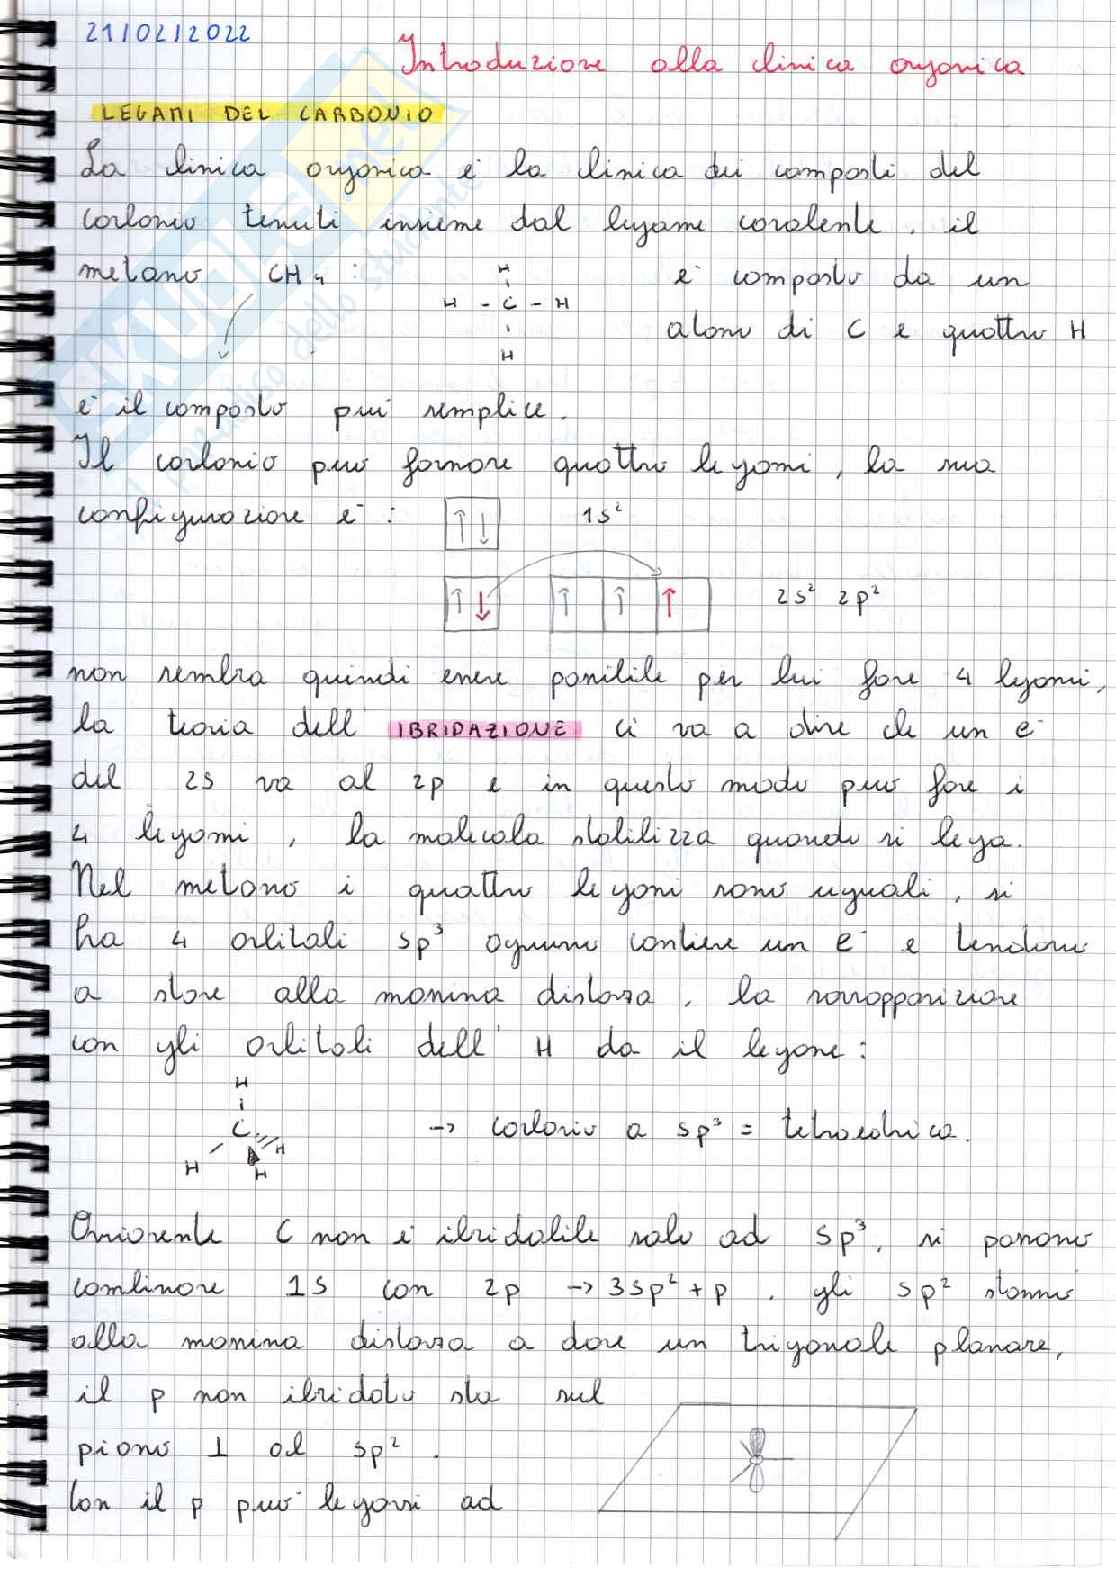 21/02/2022
Introduzione alla chimica organica
LEGAMI DEL CARBONIO
La chimica organica è la chimica dei composti del
carbonio tenuti insieme dal legame covalente, il
metano CH4 : è composto da un
H
H - C - H
atomo di C e quattro H
H
è il composto più semplice.
Il carbonio può formare quattro legami, la sua
configurazione è : ↑↓ 1s²
↑↓ ↑ ↑ ↑ 2s² 2p²
non sembra quindi essere possibile per lui fare 4 legami,
la teoria dell' IBRIDAZIONE ci va a dire che un e⁻
del 2s va al 2p e in questo modo può fare i
4 legami, la molecola stabilizza quando si lega.
Nel metano i quattro legami sono uguali, si
ha 4 orbitali sp³ ognuno contiene un e⁻ e tendono
a stare alla massima distanza, la sovrapposizione
con gli orbitali dell' H da il legame :
H
C
H H
H
→ carbonio a sp³ = tetraedrica.
Ovviamente C non è ibridabile solo ad sp³, si possono
combinare 1s con 2p → 3sp² + p. gli sp² stanno
alla massima distanza a dare un trigonale planare,
il p non ibridato sta sul
piano ⊥ al sp².
Con il p può legarsi ad
SKUOLA.net
dello studente